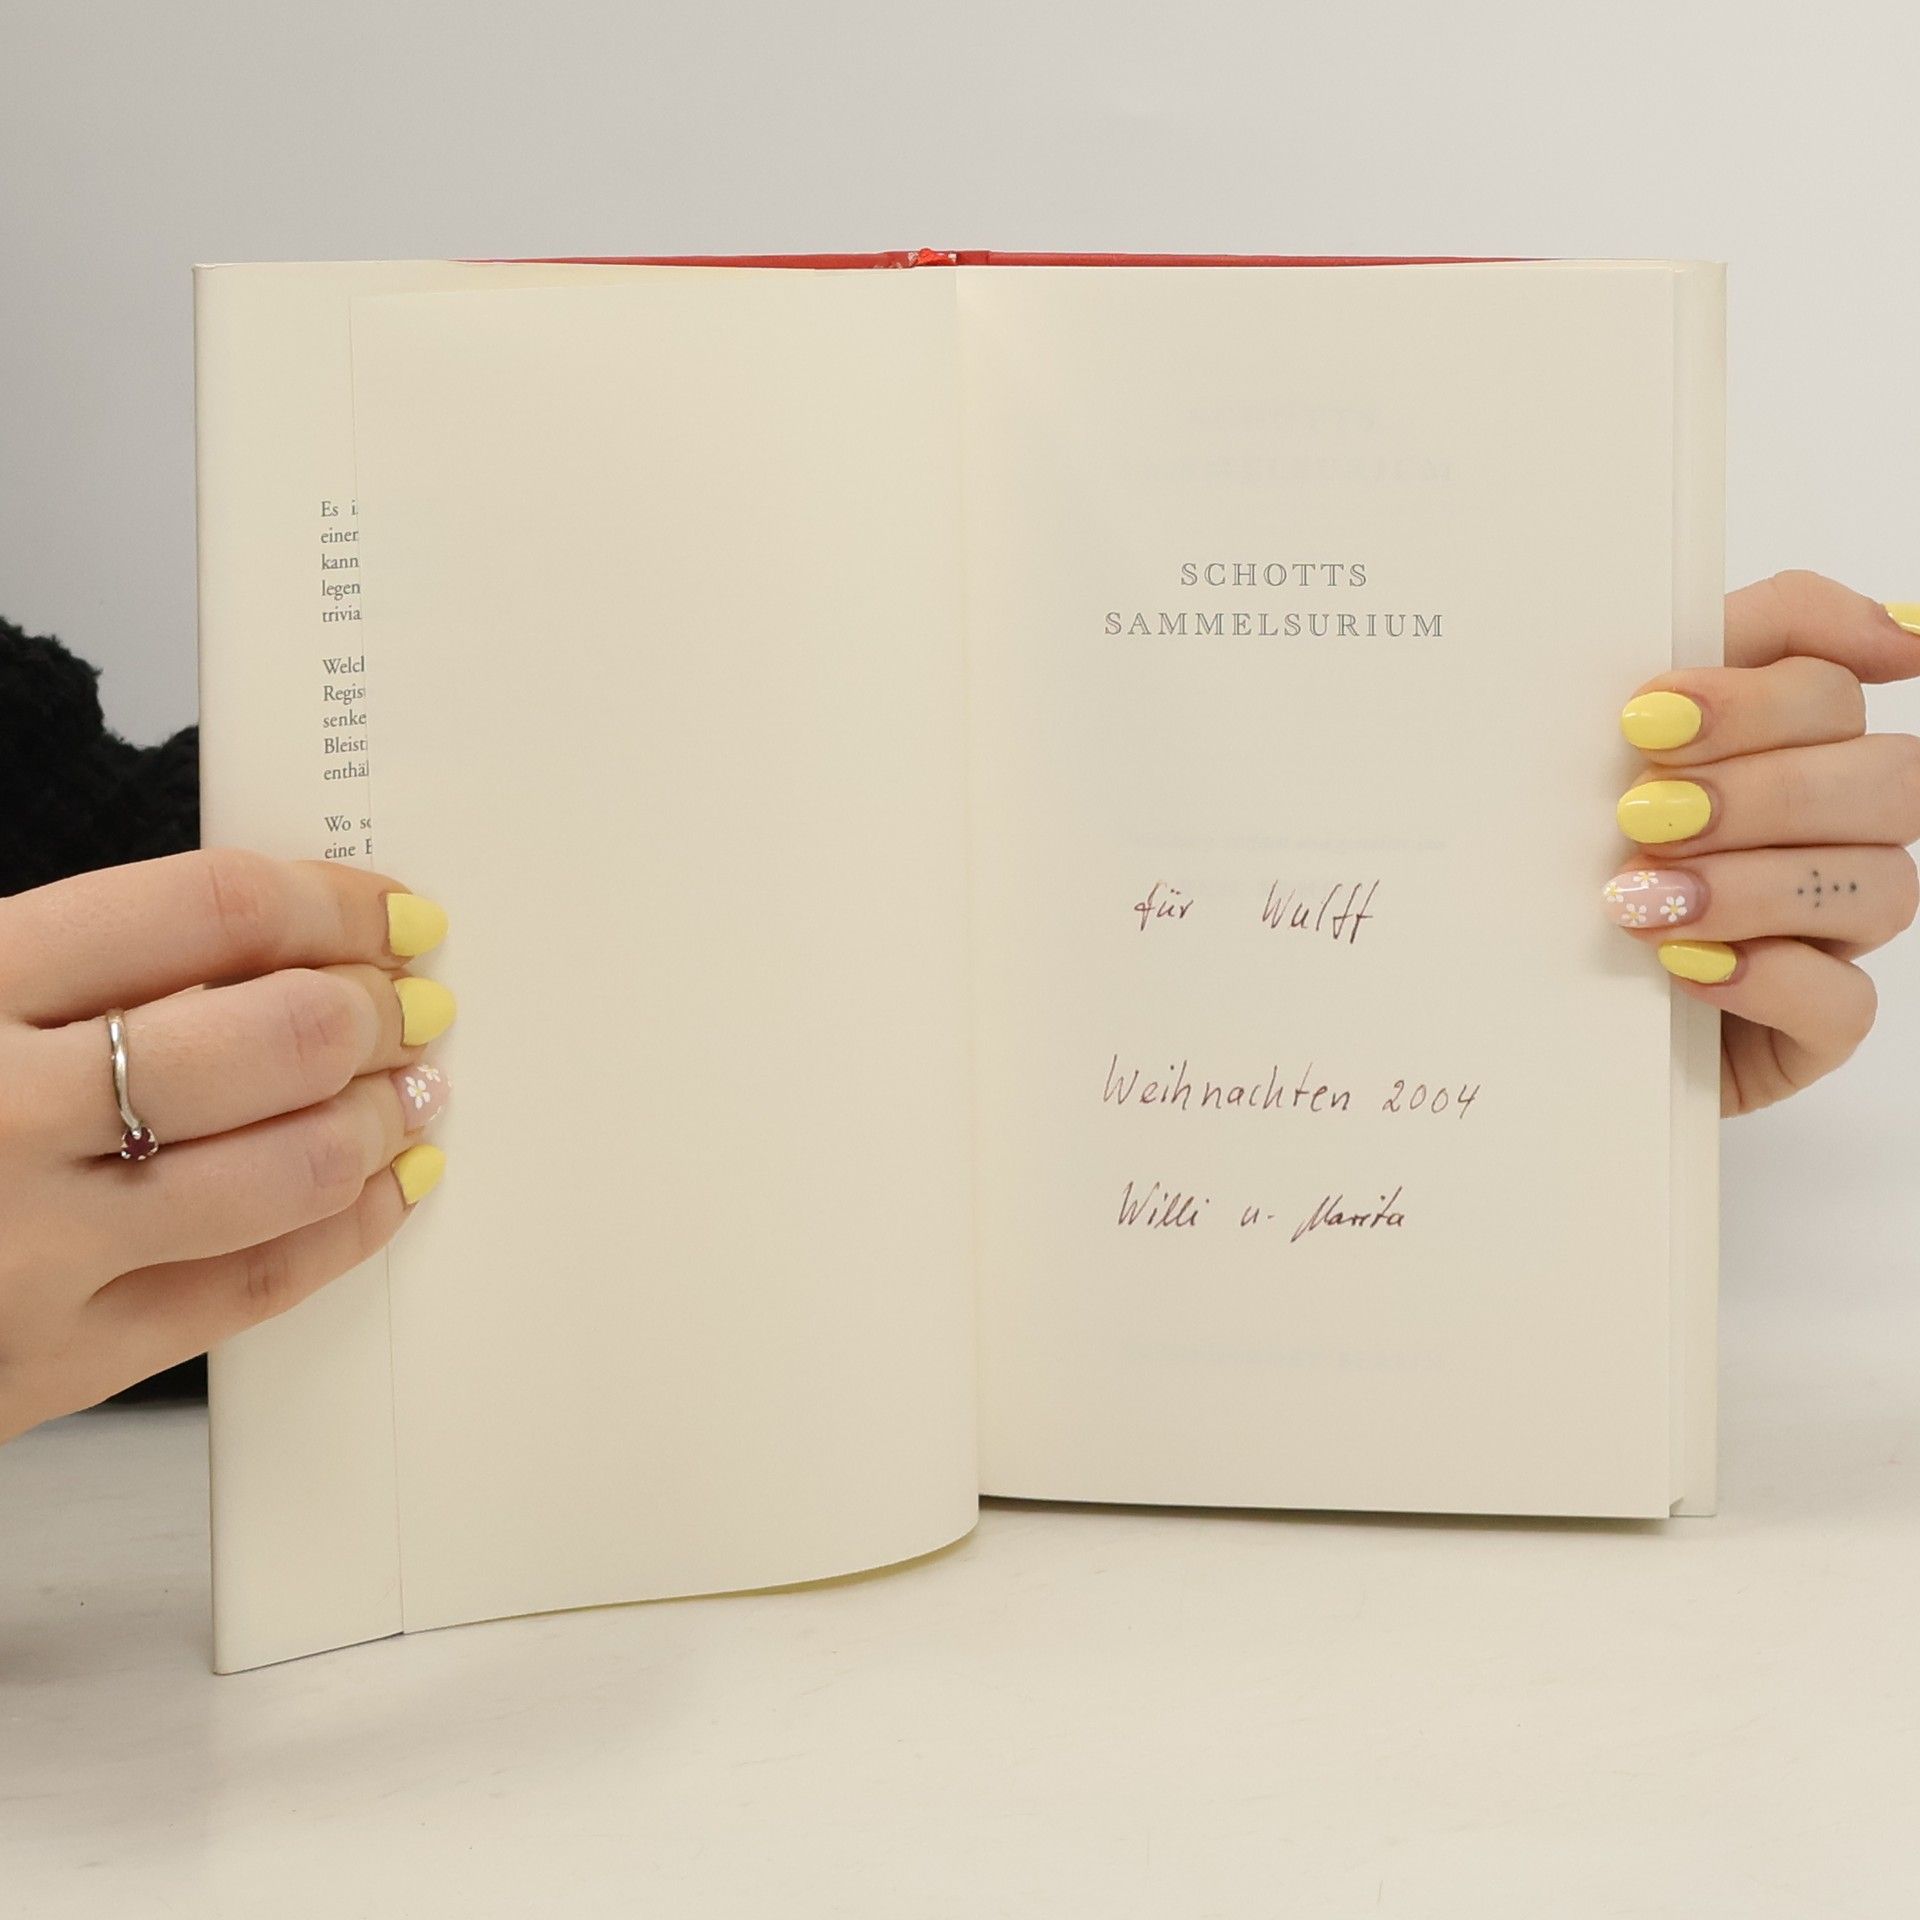 Es
einer
kann
legen
trivia
Welch
Regis
senke
Bleist
enthäl
Wo
eine
SCHOTTS
SAMMELSURIUM
für Wulff
Weihnachten 2004
Willi u. Marita